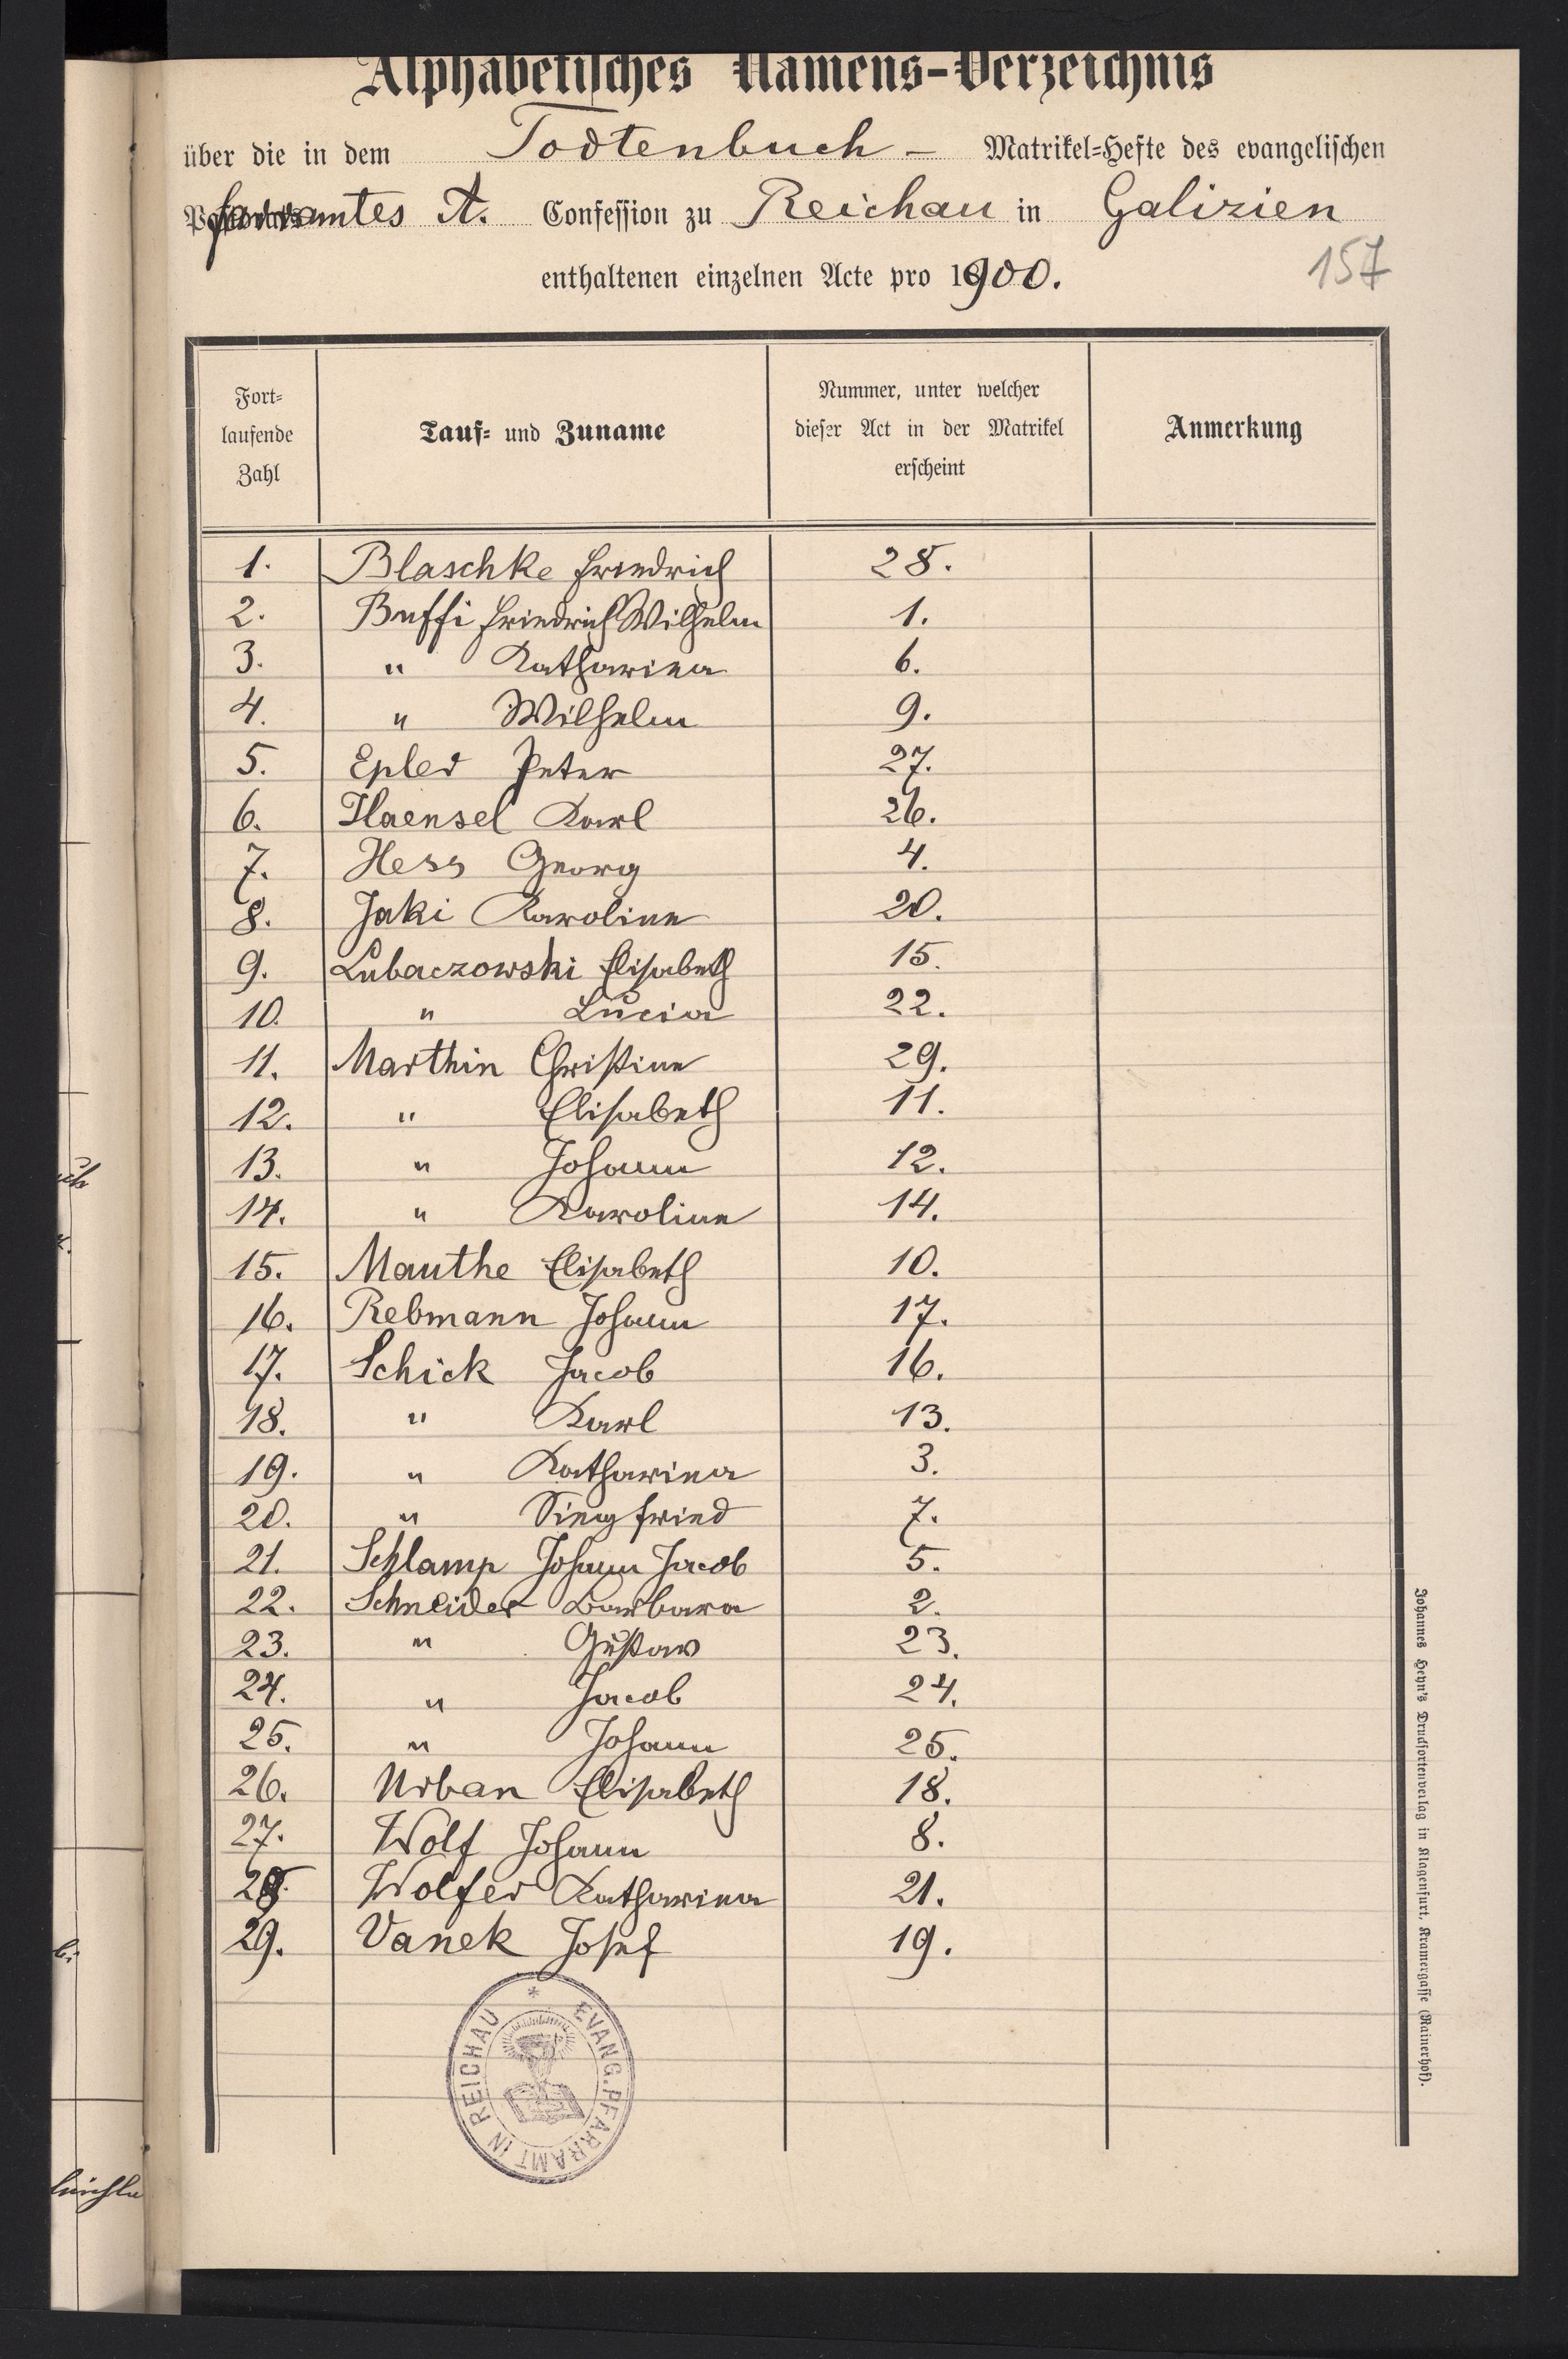 Alphabetisches Namens-Verzeichnis
über die in dem Todtenbuch - Matrikel-Hefte des evangelischen
Pfarramtes A. Confession zu Reichau in Galizien
157
enthaltenen einzelnen Acte pro 1900.
Fort-
laufende
Zahl
Tauf- und Zuname
Nummer, unter welcher
dieser Act in der Matrikel
erscheint
Anmerkung
1. Blaschke Friedrich 28.
2. Buffi Friedrich Wilhelm 1.
3. " Katharina 6.
4. " Wilhelm 9.
5. Epler Peter 27.
6. Haensel Karl 26.
7. Hess Georg 4.
8. Jaki Karoline 20.
9. Lubaczowski Elisabeth 15.
10. " Lucia 22.
11. Marthin Christine 29.
12. " Elisabeth 11.
13. " Johann 12.
14. " Karoline 14.
15. Mauthe Elisabeth 10.
16. Rebmann Johann 17.
17. Schick Jacob 16.
18. " Karl 13.
19. " Katharina 3.
20. " Siegfried 7.
21. Schlamp Johann Jacob 5.
22. Schneider Barbara 2.
23. " Gustav 23.
24. " Jacob 24.
25. " Johann 25.
26. Urban Elisabeth 18.
27. Wolf Johann 8.
28. Wolfer Katharina 21.
29. Vanek Josef 19.
EVANG. PFARRAMT IN REICHAU *
Johannes Heyn's Drucksortenverlag in Klagenfurt, Kramergasse (Rainerhof).